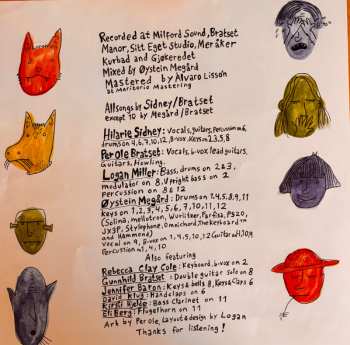 Recorded at Milford Sound, Bratset
Manor, Sitt Eget Studio, Meråker
Kurbad and Gjøkeredet
Mixed by Øystein Megård
Mastered by Alvaro Lissón
at Maritorio Mastering
All songs by Sidney/Bratset
except 10 by Megård/Bratset
Hilarie Sidney: Vocals, guitars, percussion on 6,
drums on 4,6,7,10,12, B-vox, Keys on 2,3,5,8
Per Ole Bratset: Vocals, b-vox lead guitars,
Guitars, Howling.
Logan Miller: Bass, drums on 2&3,
modulator on 8, Upright bass on 2
percussion on 8&12
Øystein Megård: Drums on 1,4,5,8,9,11
keys on 1,2,3,4,5,6,7,10,11,12
(Solina, mellotron, Wurlitzer, Farfisa, PS20,
JX3P, Stylophone, Omnichord, The Kerbearth
and Hammond)
Vocal on 9, B-vox on 1,4,5,10,12 Guitar on 1,10,9
Percussion on 1,4,10
Also featuring
Rebecca Clay Cole: Keyboard, b-vox on 2
Gunnhild Bratset: Double guitar solo on 8
Jennifer Baron: Keys & bells 8, Keys & Claps 6
David Klug: Handclaps on 6
Kirsti Kjelde: Bass Clarinet on 11
Eli Berg: Flugelhorn on 11
Art by Per Ole, Layout & design by Logan
Thanks for listening!